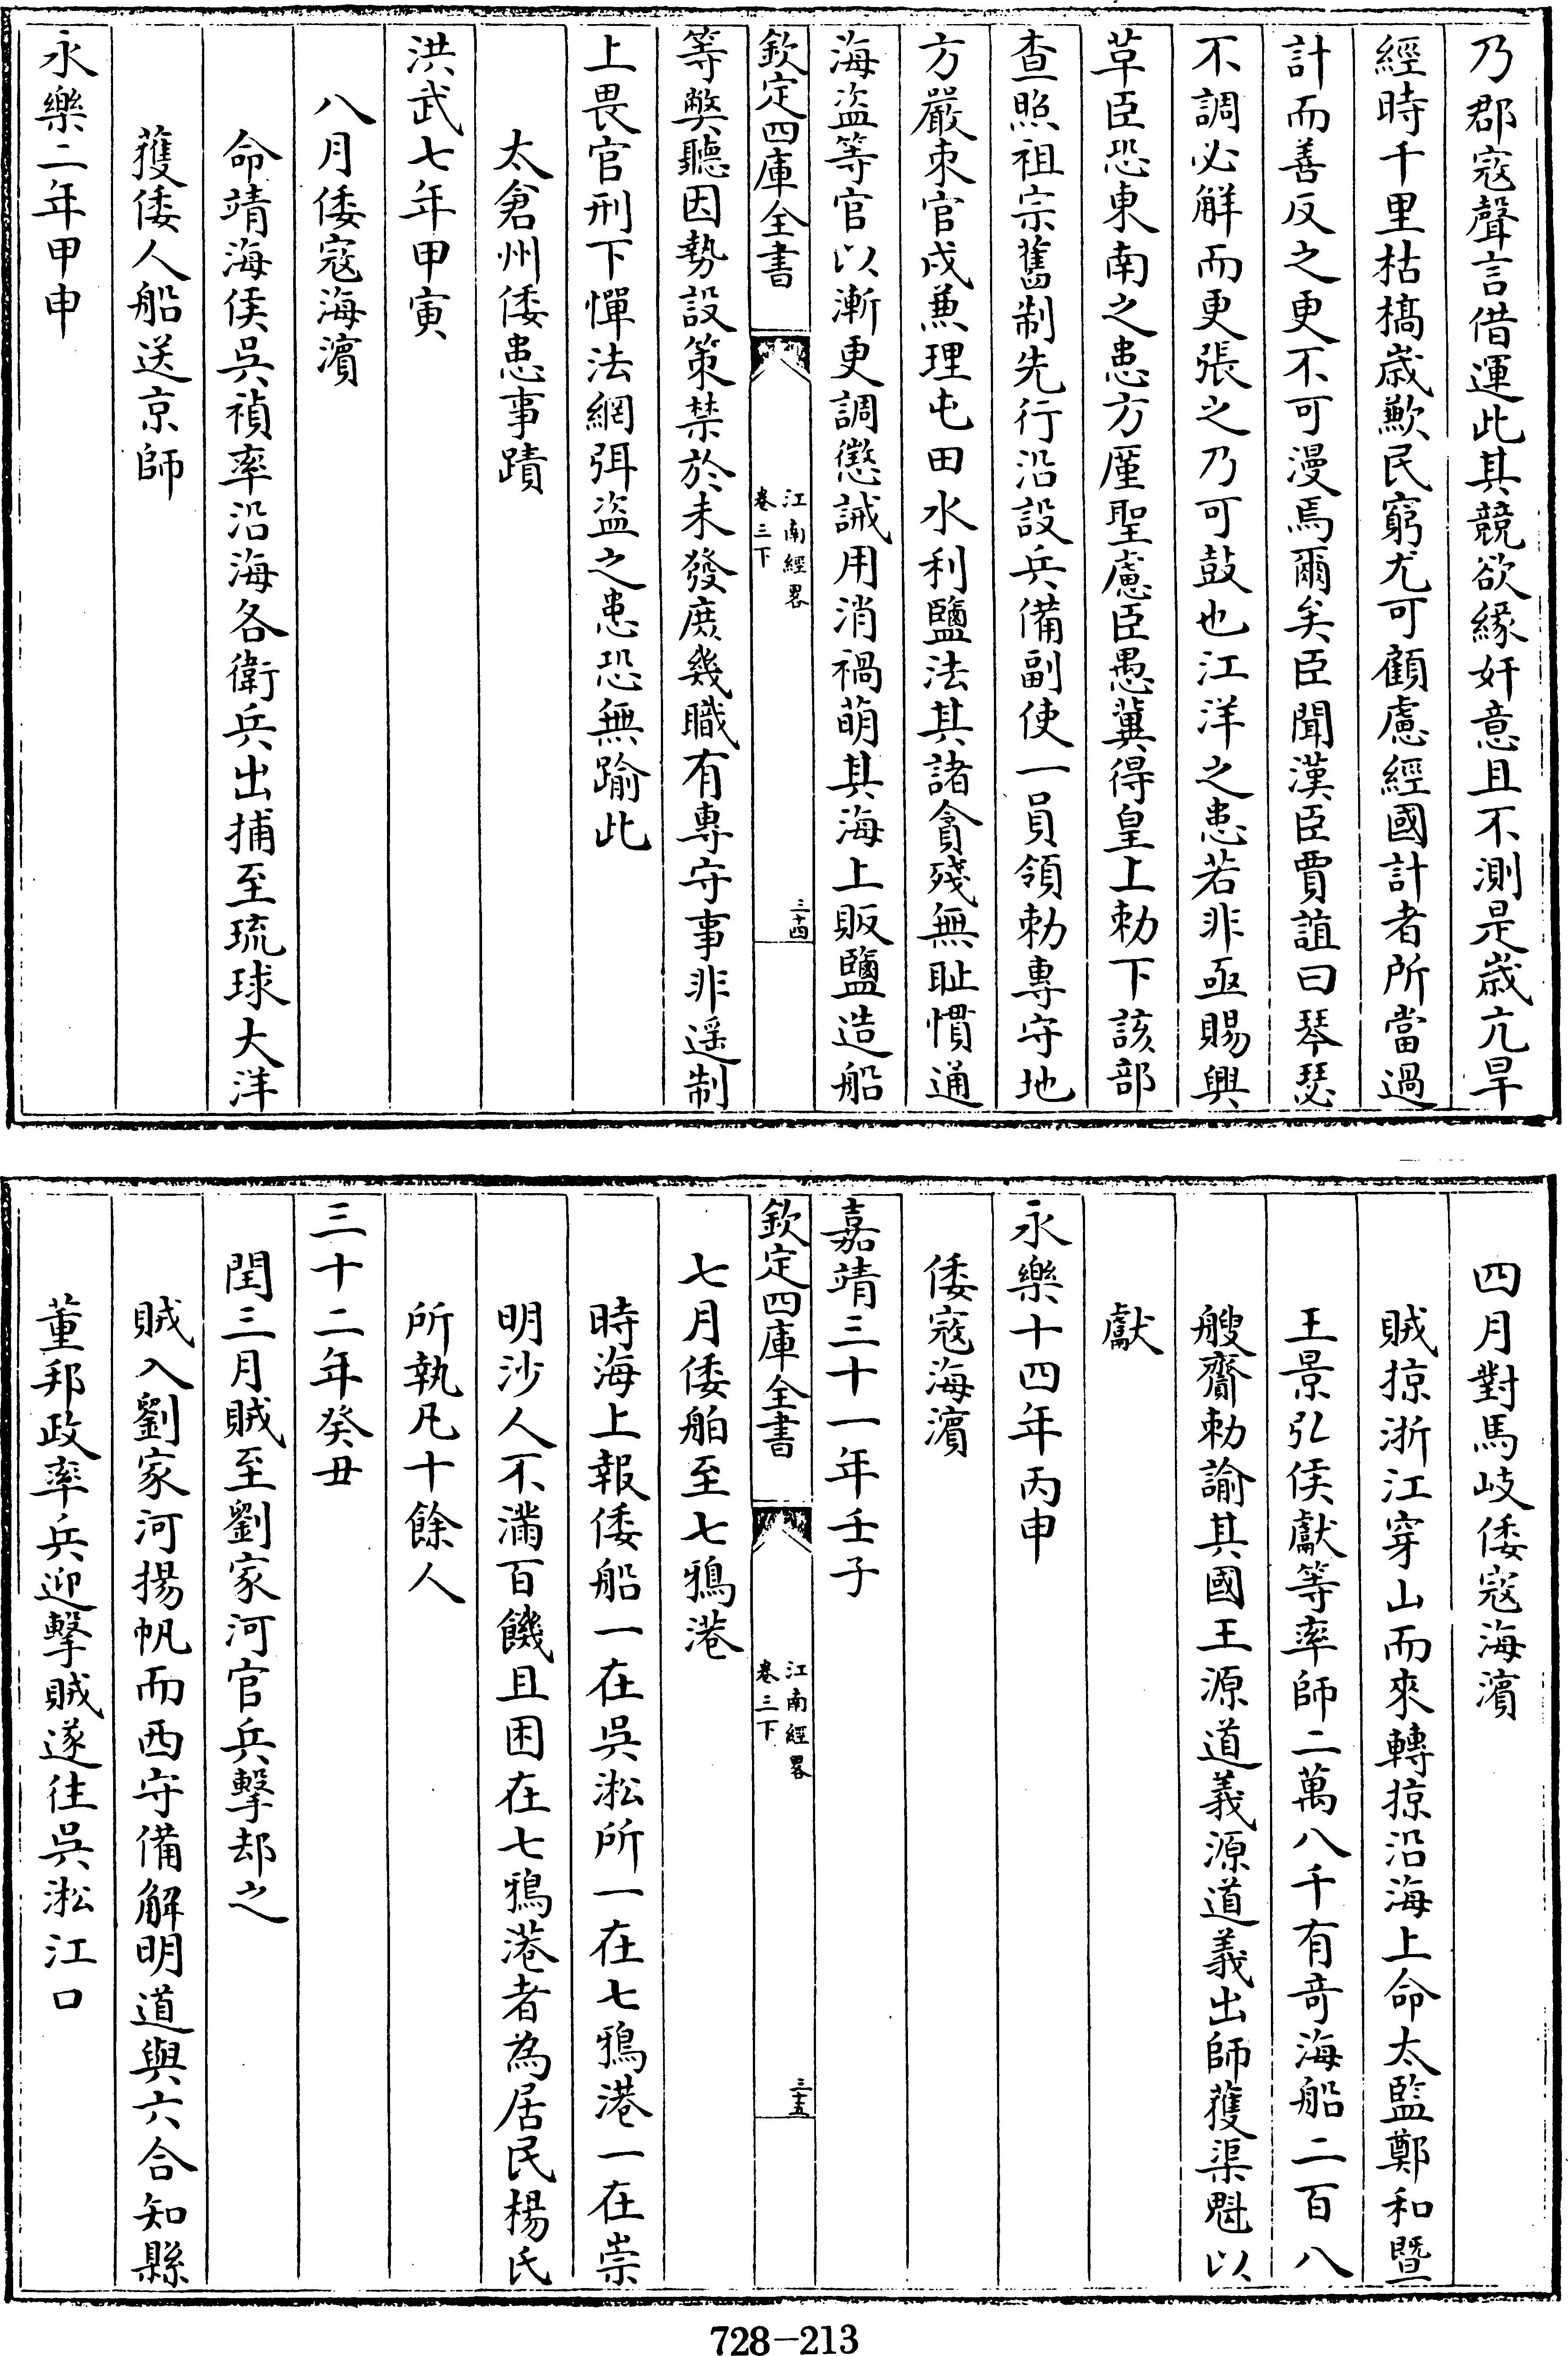 乃郡寇聲言借運此其競欲緣奸意且不測是歲亢旱
經時千里枯槁歲歉民窮尤可顧慮經國計者所當過
計而善反之更不可漫焉爾矣臣聞漢臣賈誼曰琴瑟
不調必解而更張之乃可鼓也江洋之患若非亟賜興
草臣恐東南之患方厪聖慮臣愚冀得皇上勅下該部
查照祖宗舊制先行沿設兵備副使一員領勅專守地
方嚴束官戍兼理屯田水利鹽法其諸貪殘無恥慣通
海盜等官以漸更調懲誡用消禍萌其海上販鹽造船
欽定四庫全書
江南經畧
卷三下
三十四
等獘聽因勢設策禁於未發庶幾職有專守事非遥制
上畏官刑下憚法網弭盜之患恐無踰此
太倉州倭患事蹟
洪武七年甲寅
八月倭寇海濱
命靖海侯吳禎率沿海各衛兵出捕至琉球大洋
獲倭人船送京師
永樂二年甲申
四月對馬岐倭寇海濱
賊掠浙江穿山而來轉掠沿海上命太監鄭和暨
王景弘侯獻等率師二萬八千有奇海船二百八
艘齎勅諭其國王源道義源道義出師獲渠魁以
獻
永樂十四年丙申
倭寇海濱
嘉靖三十一年壬子
欽定四庫全書
江南經畧
卷三下
三十五
七月倭舶至七鴉港
時海上報倭船一在吳淞所一在七鴉港一在崇
明沙人不滿百饑且困在七鴉港者為居民楊氏
所執凡十餘人
三十二年癸丑
閏三月賊至劉家河官兵擊却之
賊入劉家河揚帆而西守備解明道與六合知縣
董邦政率兵迎擊賊遂往吳淞江口
728-213